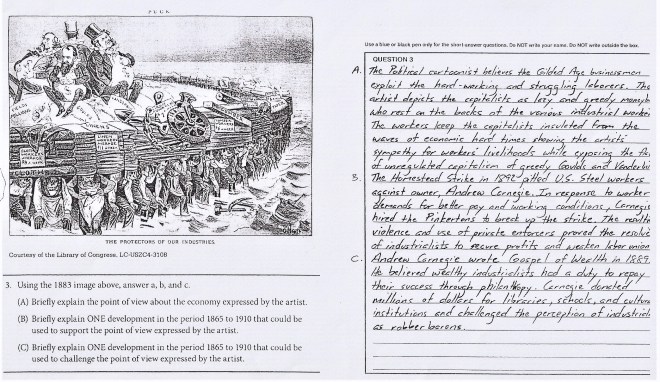 PUCK
THE PROTECTORS OF OUR INDUSTRIES
Courtesy of the Library of Congress, LC-USZC4-3108
3. Using the 1883 image above, answer a, b, and c.
(A) Briefly explain the point of view about the economy expressed by the artist.
(B) Briefly explain ONE development in the period 1865 to 1910 that could be
used to support the point of view expressed by the artist.
(C) Briefly explain ONE development in the period 1865 to 1910 that could be
used to challenge the point of view expressed by the artist.
Use a blue or black pen only for the short-answer questions. Do NOT write your name. Do NOT write outside the box.
QUESTION 3
A. The Political cartoonist believes the Gilded Age businessmen
exploit the hard-working and struggling laborers. The
artist depicts the capitalists as lazy and greedy
who rest on the backs of the various industrial
The workers keep the capitalists insulated from the
waves of economic hard times showing the artists'
sympathy for workers' livelihoods while exposing the
of unregulated capitalism of greedy Goulds and
B. The Homestead Strike in 1892 pitted U.S. Steel workers
against owner, Andrew Carnegie. In response to worker
demands for better pay and working conditions, Carnegie
hired the Pinkertons to break up the strike. The
violence and use of private enforcers proved the resolve
of industrialists to secure profits and weaken labor union
C. Andrew Carnegie wrote Gospel of Wealth in 1889.
He believed wealthy industrialists had a duty to repay
their success through philanthopy. Carnegie donated
millions of dollars for libraries, schools, and
institutions and challenged the perception of
as robber barons.